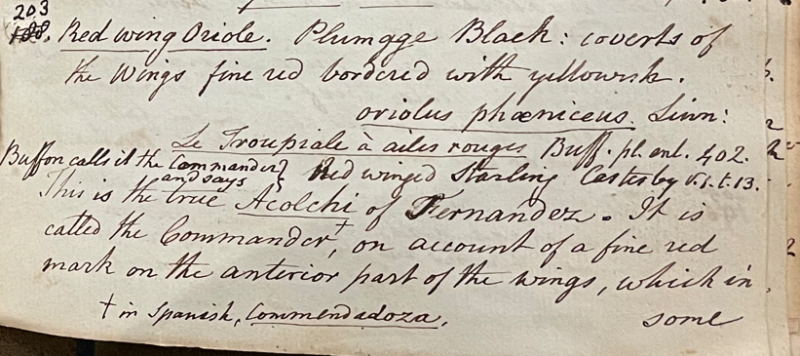 203
188. Red wing Oriole. Plumage Black: coverts of
the Wings fine red bordered with yellowish.
oriolus phœniceus. Linn:
Le Troupiale à ailes rouges Buff. pl. enl. 402.
Buffon calls it the Commander and says } Red winged Starling Catesby v. 1. t. 13.
This is the true Acolchi of Fernandez. It is
called the Commander†, on account of a fine red
mark on the anterior part of the wings, which in
† in Spanish, Commendadoza.
some